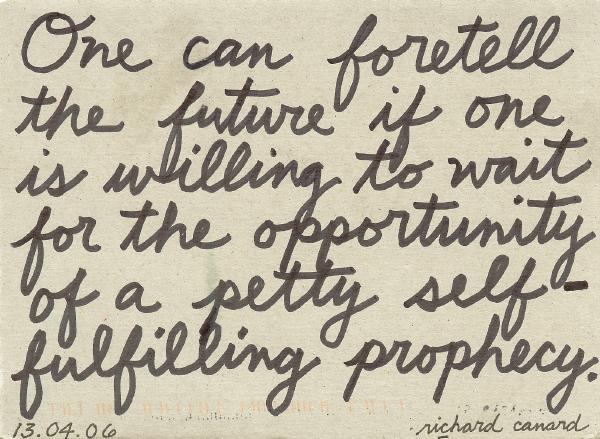 One can foretell
the future if one
is willing to wait
for the opportunity
of a petty self-
fulfilling prophecy.
13.04.06 richard canard